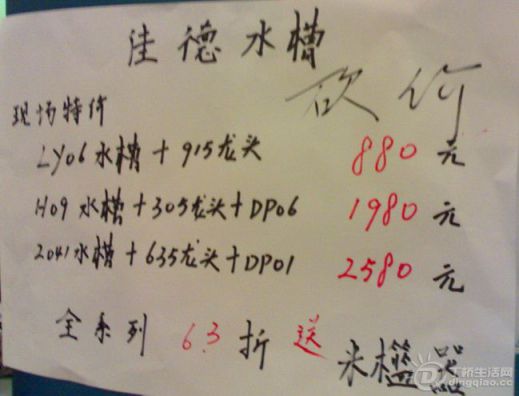 佳德水槽
砍价
现场特价
LY06水槽+915龙头 880元
H09水槽+305龙头+DP06 1980元
2041水槽+635龙头+DP01 2580元
全系列 6.3折 送 米柜器
丁桥生活网
dingqiao.cc